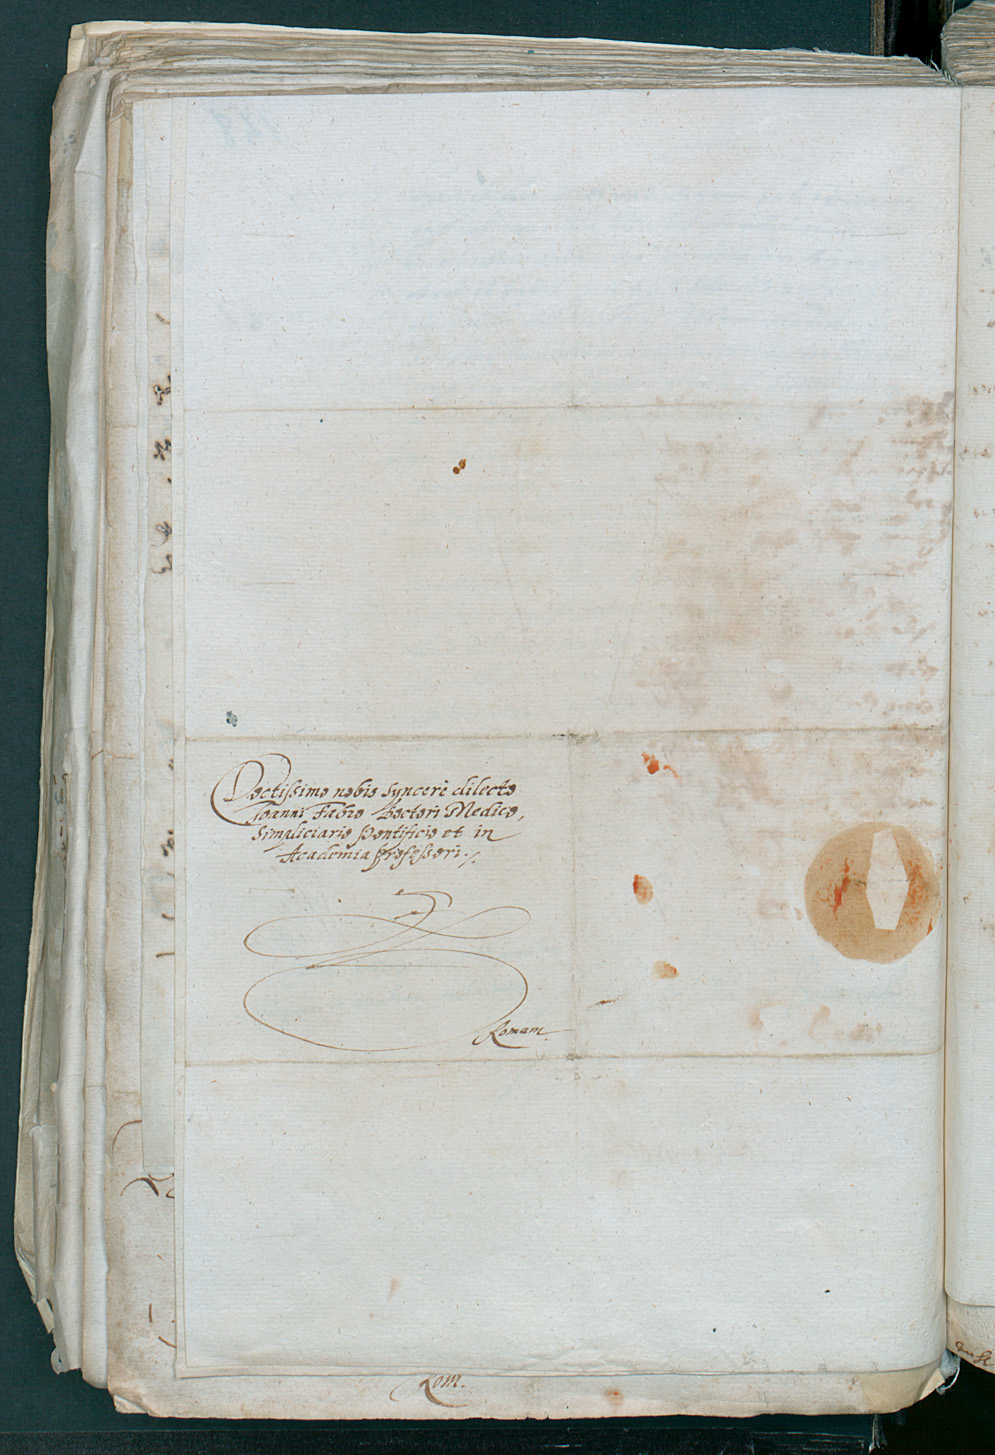 Doctissimo nobis syncerè dilecto
Joanni Fabro Doctori Medico,
Simpliciario Pontificio et in
Academia professori ./.
Romam
Rom.